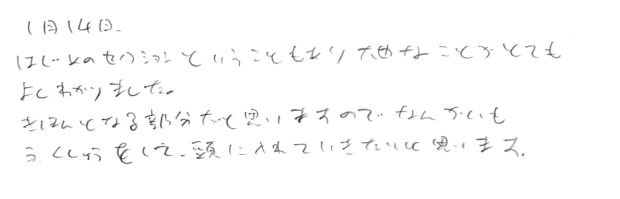 1月14日.
はじめのセクションということもあり大切なことがとても
よくわかりました。
きほんとなる部分だと思いますので、なんかいも
ふくしゅうをして、頭に入れていきたいと思います。